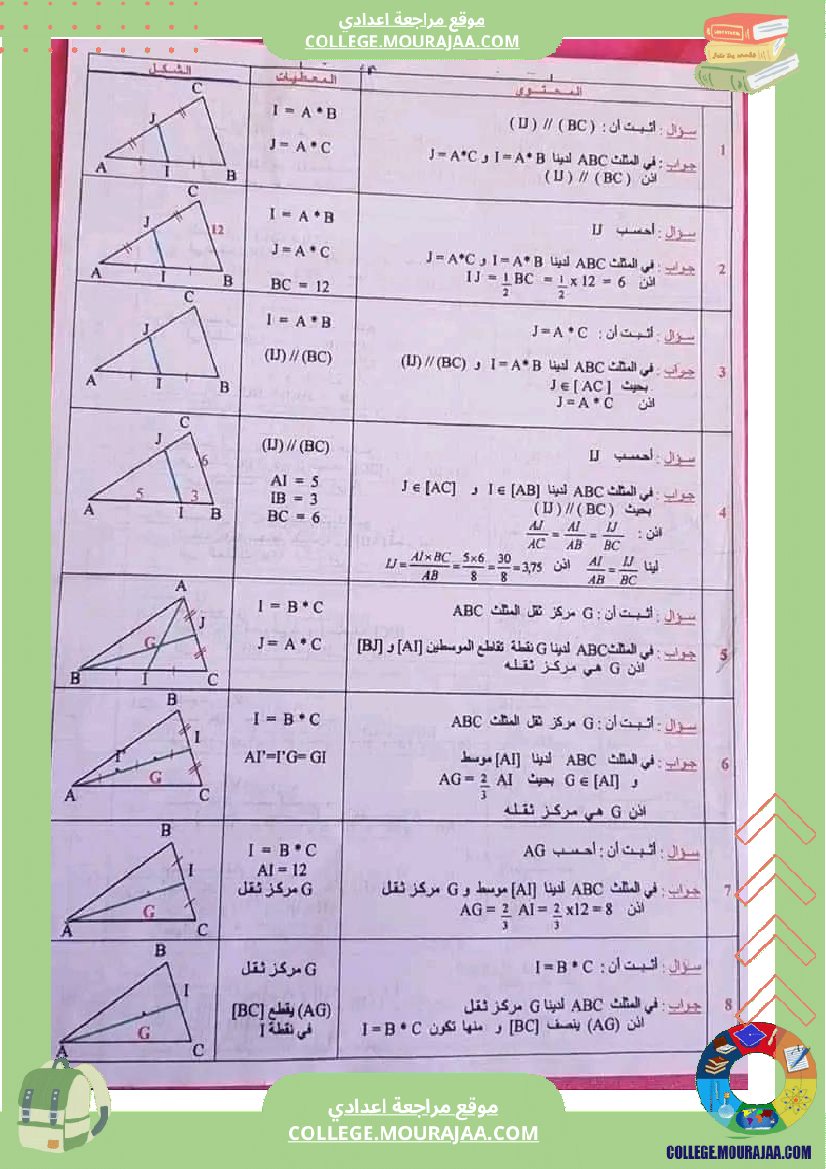 موقع مراجعة اعدادي
COLLEGE.MOURAJAA.COM
المحتوى
المعطيات
الشكل
1
سؤال : أثبت أن : (IJ) // (BC)
جواب : في المثلث ABC لدينا I = A*B و J = A*C
اذن (IJ) // (BC)
I = A * B
J = A * C
C
J
A
I
B
2
سؤال : أحسب IJ
جواب : في المثلث ABC لدينا I = A*B و J = A*C
اذن IJ = 1/2 BC = 1/2 x 12 = 6
I = A * B
J = A * C
BC = 12
C
J
12
A
I
B
3
سؤال : أثبت أن : J = A * C
جواب : في المثلث ABC لدينا I = A*B و (IJ) // (BC)
بحيث J ∈ [AC]
اذن J = A * C
I = A * B
(IJ) // (BC)
C
J
A
I
B
4
سؤال : أحسب IJ
جواب : في المثلث ABC لدينا I ∈ [AB] و J ∈ [AC]
بحيث (IJ) // (BC)
اذن : AJ/AC = AI/AB = IJ/BC
لينا AI/AB = IJ/BC اذن IJ = AI×BC/AB = 5×6/8 = 30/8 = 3,75
(IJ) // (BC)
AI = 5
IB = 3
BC = 6
C
J
6
5
3
A
I
B
5
سؤال : أثبت أن : G مركز ثقل المثلث ABC
جواب : في المثلث ABC لدينا G نقطة تقاطع الموسطين [AI] و [BJ]
اذن G هي مركز ثقله
I = B * C
J = A * C
A
J
G
B
I
C
6
سؤال : أثبت أن : G مركز ثقل المثلث ABC
جواب : في المثلث ABC لدينا [AI] موسط
و G ∈ [AI] بحيث AG = 2/3 AI
اذن G هي مركز ثقله
I = B * C
AI'=I'G= GI
B
I
I'
G
A
C
7
سؤال : أثبت أن : أحسب AG
جواب : في المثلث ABC لدينا [AI] موسط و G مركز ثقل
اذن AG = 2/3 AI = 2/3 x12 = 8
I = B * C
AI = 12
G مركز ثقل
B
I
G
A
C
8
سؤال : أثبت أن : I = B * C
جواب : في المثلث ABC لدينا G مركز ثقل
اذن (AG) ينصف [BC] و منها تكون I = B * C
G مركز ثقل
(AG) يقطع [BC]
في نقطة I
B
I
G
A
C
موقع مراجعة اعدادي
COLLEGE.MOURAJAA.COM
COLLEGE.MOURAJAA.COM